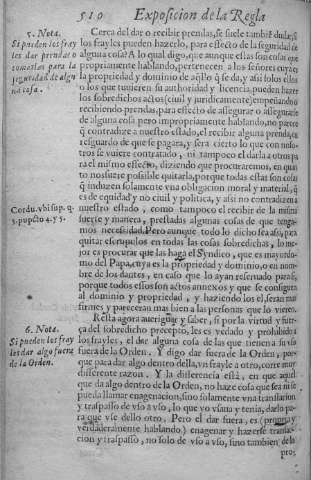 510 Exposicion de la Regla
5. Nota.
Si pueden los fray
les dar prendas o
tomarlas para la
seguridad de algu
na cosa.
Cerca del dar o recibir prendas, se suele tambiẽ dudar, si
los frayles pueden hazerlo, para effecto de la seguridad de
alguna cosa? A lo qual digo, que aunque estas son cosas que
propriamente hablando, pertenecen a los señores cuya es
la propriedad y dominio de aq̃llo q̃ se da, y assi solos ellos
o los que tuuieren su authoridad y licencia, pueden hazer
los sobredichos actos (ciuil y juridicamente) empeñando o
recibiendo prendas, para effecto de assegurar o assegurarse
de alguna cosa: pero impropriamente hablando, no parece
q̃ contradize a nuestro estado, el recibir alguna prenda, en
resguardo de que se pagara, y sera cierto lo que con noso-
tros se vuiere contratado, ni tampoco el darla a otros pa
ra el mismo effecto, diziendo que procuraremos, en quan
to nos fuere possible quitarla, porque todas estas son cosas
q̃ induzen solamente vna obligacion moral y material, q̃
es de equidad y no ciuil y politica, y assi no contradizen a
nuestro estado, como tampoco el recibir de la misma
suerte y manera, prestadas algunas cosas de que tenga-
mos necessidad. Pero aunque todo lo dicho sea assi, para
quitar escrupulos en todas las cosas sobredichas, lo me-
jor es procurar que las haga el Syndico, que es mayordo-
mo del Papa, cuya es la propriedad y dominio, o en nom-
bre de los dantes, en caso que lo ayan reseruado para si,
porque todos essos son actos annexos y que se consiguen
al dominio y propriedad, y haziendo los el, seran mas
firmes y pareceran mas bien a las personas que lo vieren.
Cordu. vbi sup. q.
5. pũcto 4. y 5.
6. Nota.
Si pueden los fray
les dar algo fuera
de la Orden.
Resta agora aueriguar y saber, si por la virtud y fuer-
ça del sobredicho precepto, les es vedado y prohibido a
los frayles, el dar alguna cosa de las que tienen a su vso
fuera de la Orden. Y digo dar fuera de la Orden, por-
que para dar algo dentro della, vn frayle a otro, corre muy
differente razon. Y la differencia està, en que aquel
que da algo dentro de la Orden, no haze cosa que sea ni se
pueda llamar enagenacion, sino solamente vna translacion
y traspasso de vso a vso, lo que yo vsaua y tenia, darlo pa-
ra que vse dello otro. Pero el dar fuera, es (propria y
verdaderamente hablando) enagenar y hazerse transla-
cion y traspasso, no solo de vso a vso, sino tambien de la
pro-